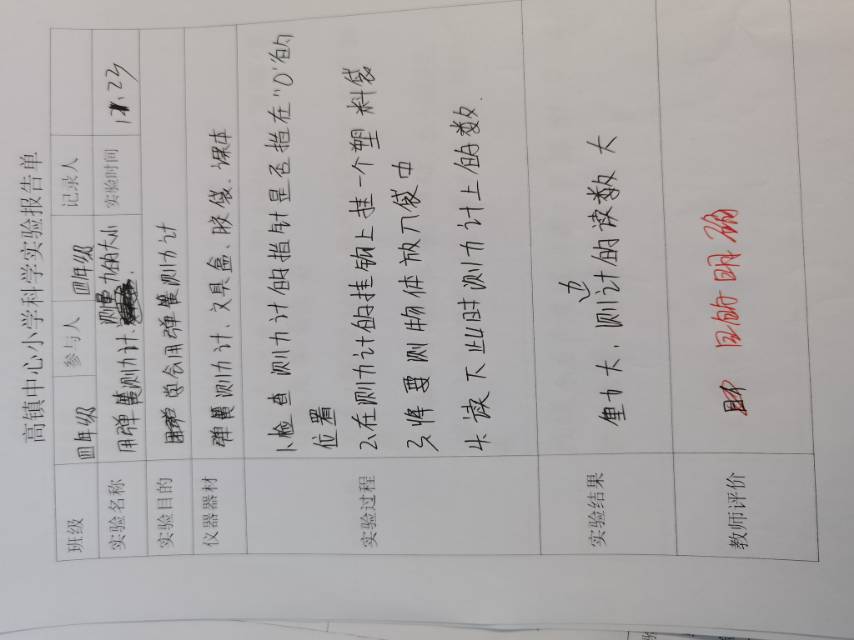 高镇中心小学科学实验报告单
班级 四年级 参与人 四年级 记录人
实验名称 用弹簧测力计测量力的大小 实验时间 11.23
实验目的 学会用弹簧测力计
仪器器材 弹簧测力计、文具盒、胶袋、课本
实验过程
1、检查测力计的指针是否指在"0"的
位置
2、在测力计的挂钩上挂一个塑料袋
3、将要测物体放入袋中
4、读下此时测力计上的数.
实验结果 重力大,测力计的读数大
教师评价 目的明确